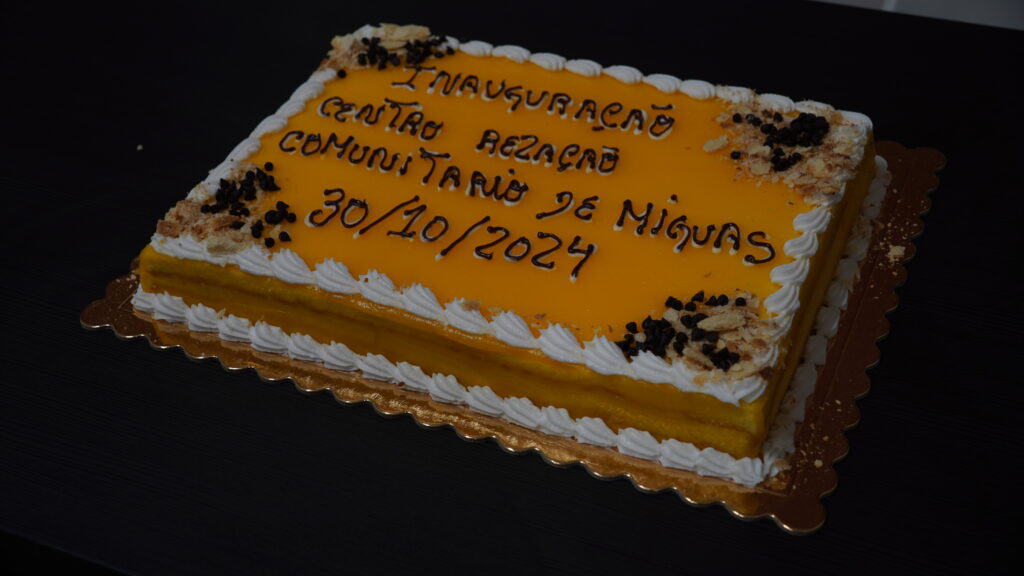 INAUGURAÇÃO
CENTRO REZAÇÃO
COMUNITARIO DE MIGUAS
30/10/2024